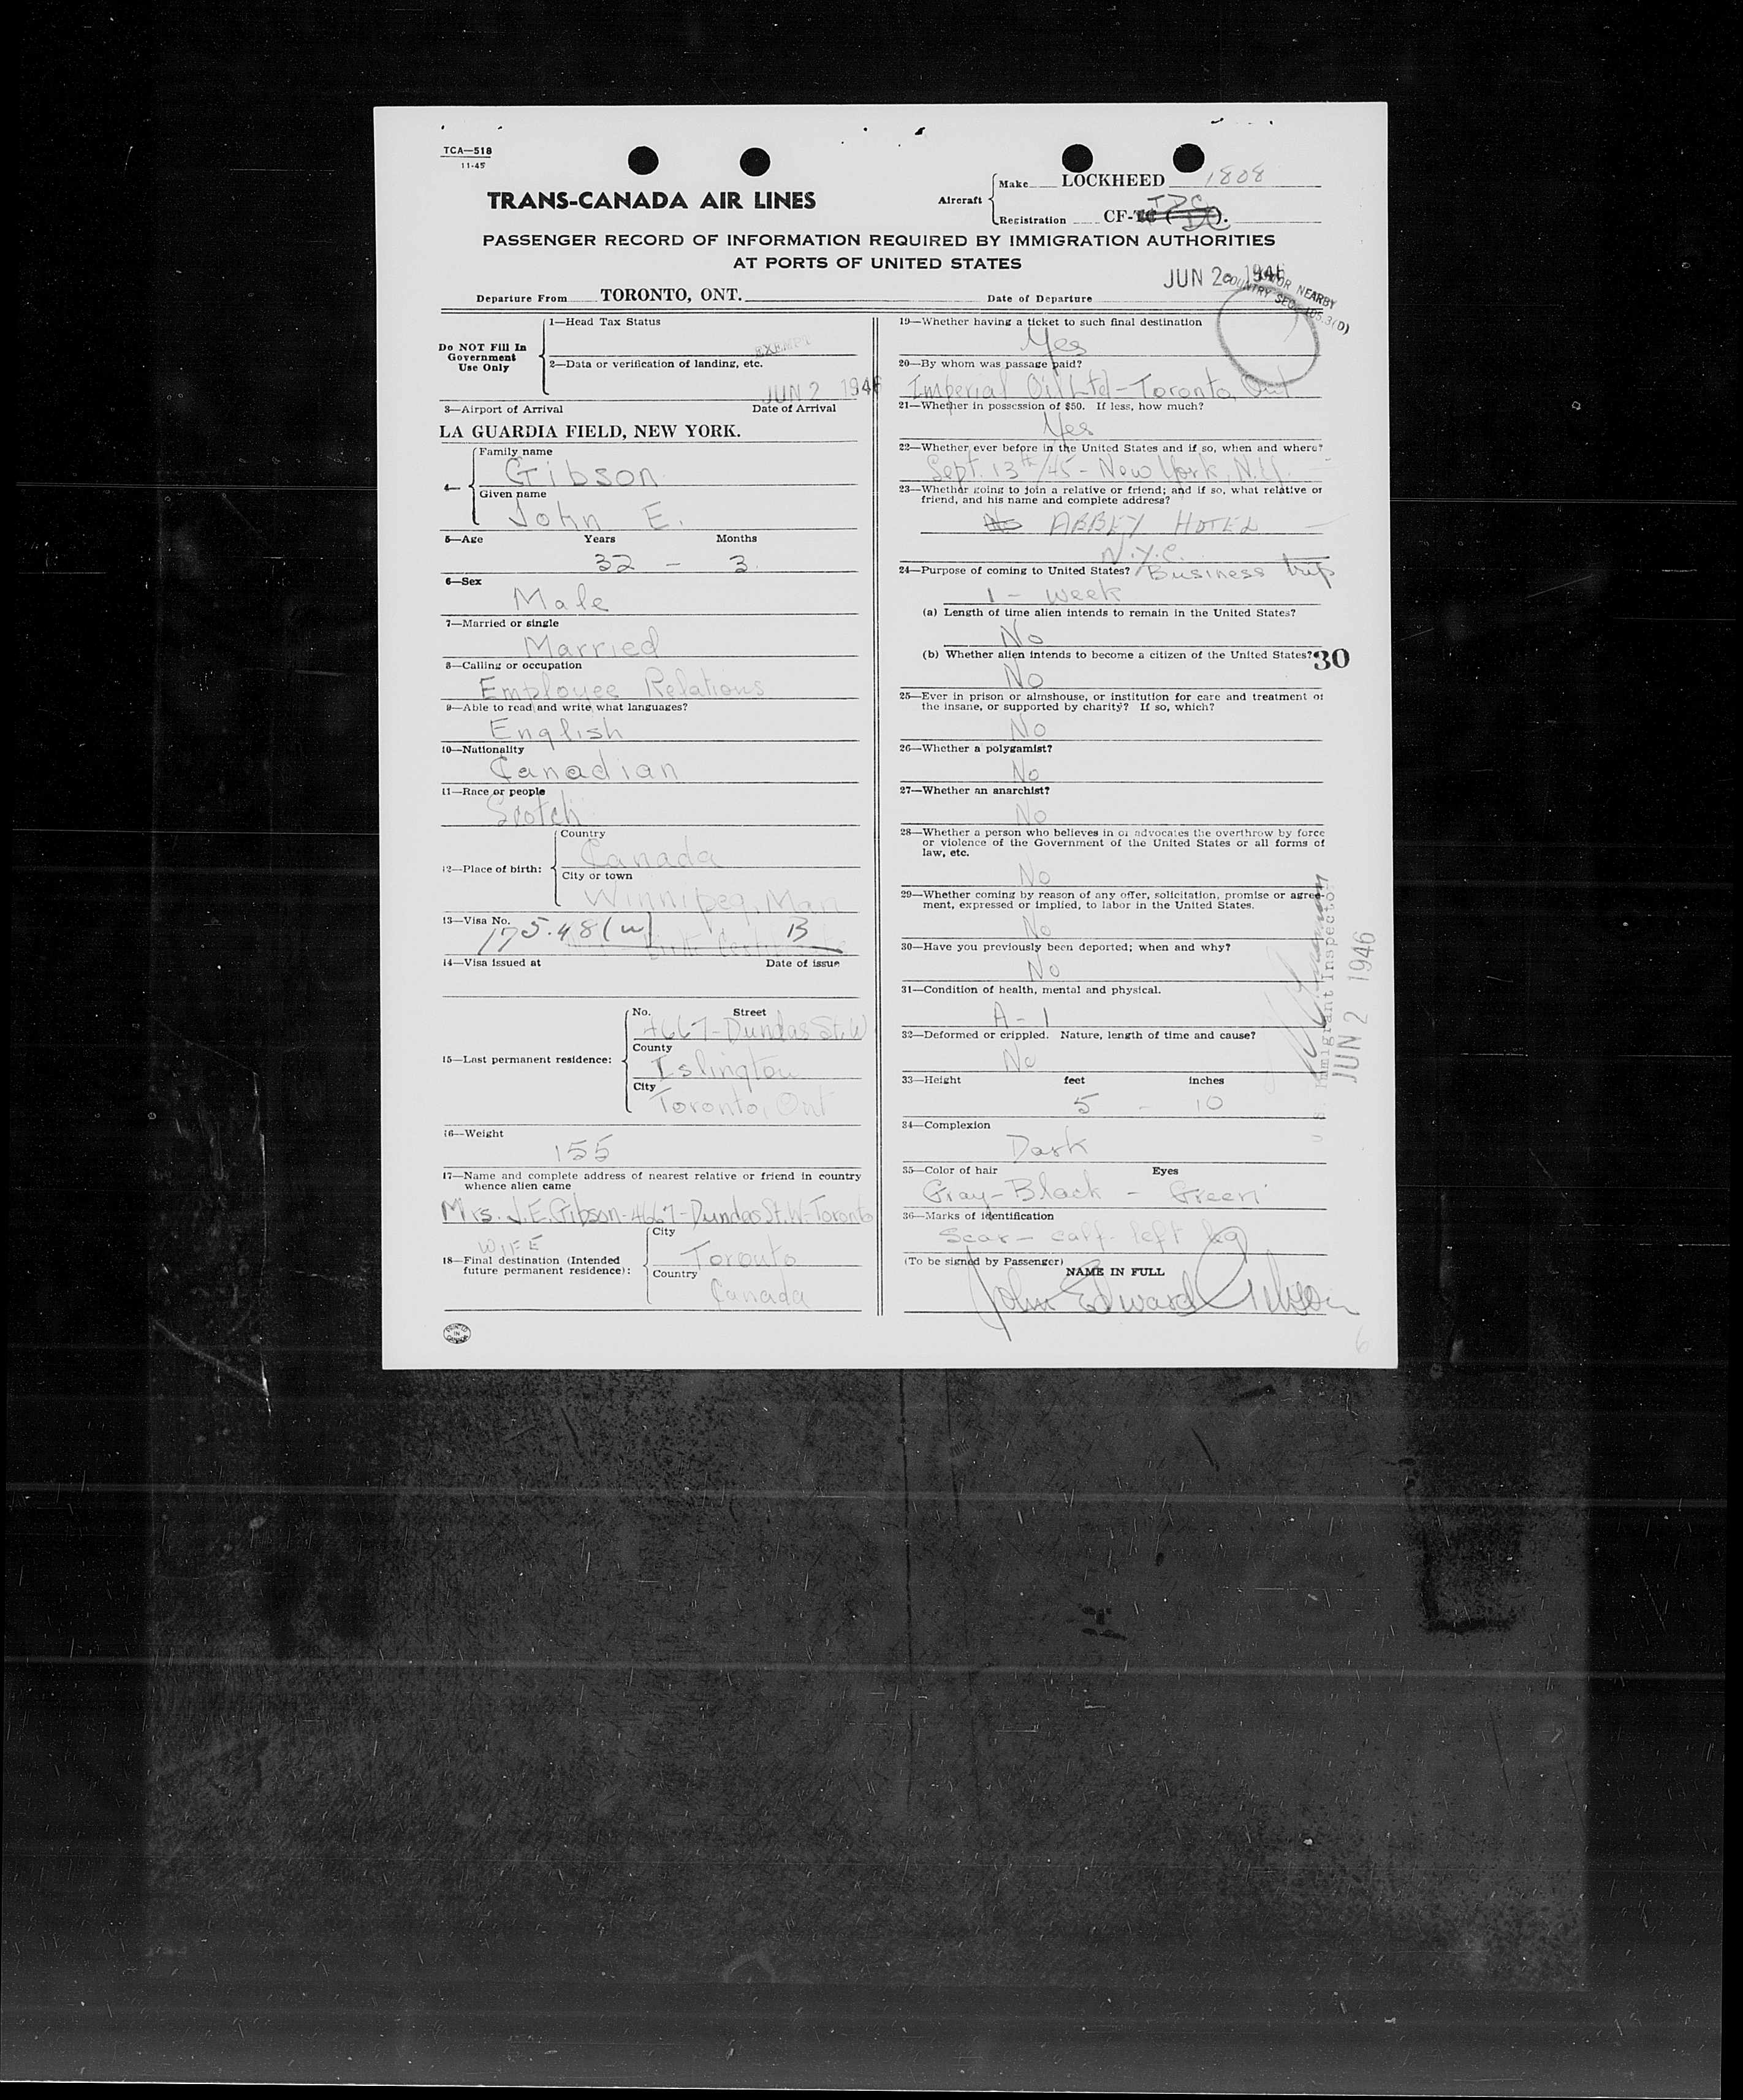 TCA—518
11-45
TRANS-CANADA AIR LINES
Aircraft
Make LOCKHEED 1808
Registration CF-
TDC
PASSENGER RECORD OF INFORMATION REQUIRED BY IMMIGRATION AUTHORITIES
AT PORTS OF UNITED STATES
Departure From TORONTO, ONT.
Date of Departure JUN 2 1946
NEARBY
COUNTRY SEC.
Do NOT Fill In
Government
Use Only
1—Head Tax Status
EXEMPT
2—Data or verification of landing, etc.
JUN 2 1946
3—Airport of Arrival Date of Arrival
LA GUARDIA FIELD, NEW YORK.
4—
Family name
Gibson
Given name
John E.
5—Age Years Months
32 - 3
6—Sex
Male
7—Married or single
Married
8—Calling or occupation
Employee Relations
9—Able to read and write what languages?
English
10—Nationality
Canadian
11—Race or people
Scotch
12—Place of birth:
Country
Canada
City or town
Winnipeg, Man
13—Visa No.
175.48(w) B
14—Visa issued at Date of issue
15—Last permanent residence:
No. Street
4667-Dundas St. W
County
Islington
City
Toronto, Ont
16—Weight
155
17—Name and complete address of nearest relative or friend in country
whence alien came
Mrs. J. E. Gibson-4667-Dundas St. W-Toronto
WIFE
18—Final destination (Intended
future permanent residence):
City
Toronto
Country
Canada
PRINTED
IN
CANADA
19—Whether having a ticket to such final destination
Yes
20—By whom was passage paid?
Imperial Oil Ltd-Toronto, Ont
21—Whether in possession of $50. If less, how much?
Yes
22—Whether ever before in the United States and if so, when and where?
Sept. 13th/45-New York, N.Y.
23—Whether going to join a relative or friend; and if so, what relative or
friend, and his name and complete address?
No ABBEY HOTEL
N.Y.C.
24—Purpose of coming to United States? Business trip
1 - week
(a) Length of time alien intends to remain in the United States?
No
(b) Whether alien intends to become a citizen of the United States?
30
No
25—Ever in prison or almshouse, or institution for care and treatment of
the insane, or supported by charity? If so, which?
No
26—Whether a polygamist?
No
27—Whether an anarchist?
No
28—Whether a person who believes in or advocates the overthrow by force
or violence of the Government of the United States or all forms of
law, etc.
No
29—Whether coming by reason of any offer, solicitation, promise or agree-
ment, expressed or implied, to labor in the United States.
No
30—Have you previously been deported; when and why?
No
31—Condition of health, mental and physical.
A-1
32—Deformed or crippled. Nature, length of time and cause?
No
33—Height feet inches
5 - 10
34—Complexion
Dark
35—Color of hair Eyes
Gray-Black - Green
36—Marks of identification
Scar- calf- left leg
(To be signed by Passenger)
NAME IN FULL
John Edward Gibson
U.S. Immigrant Inspector
JUN 2 1946
6